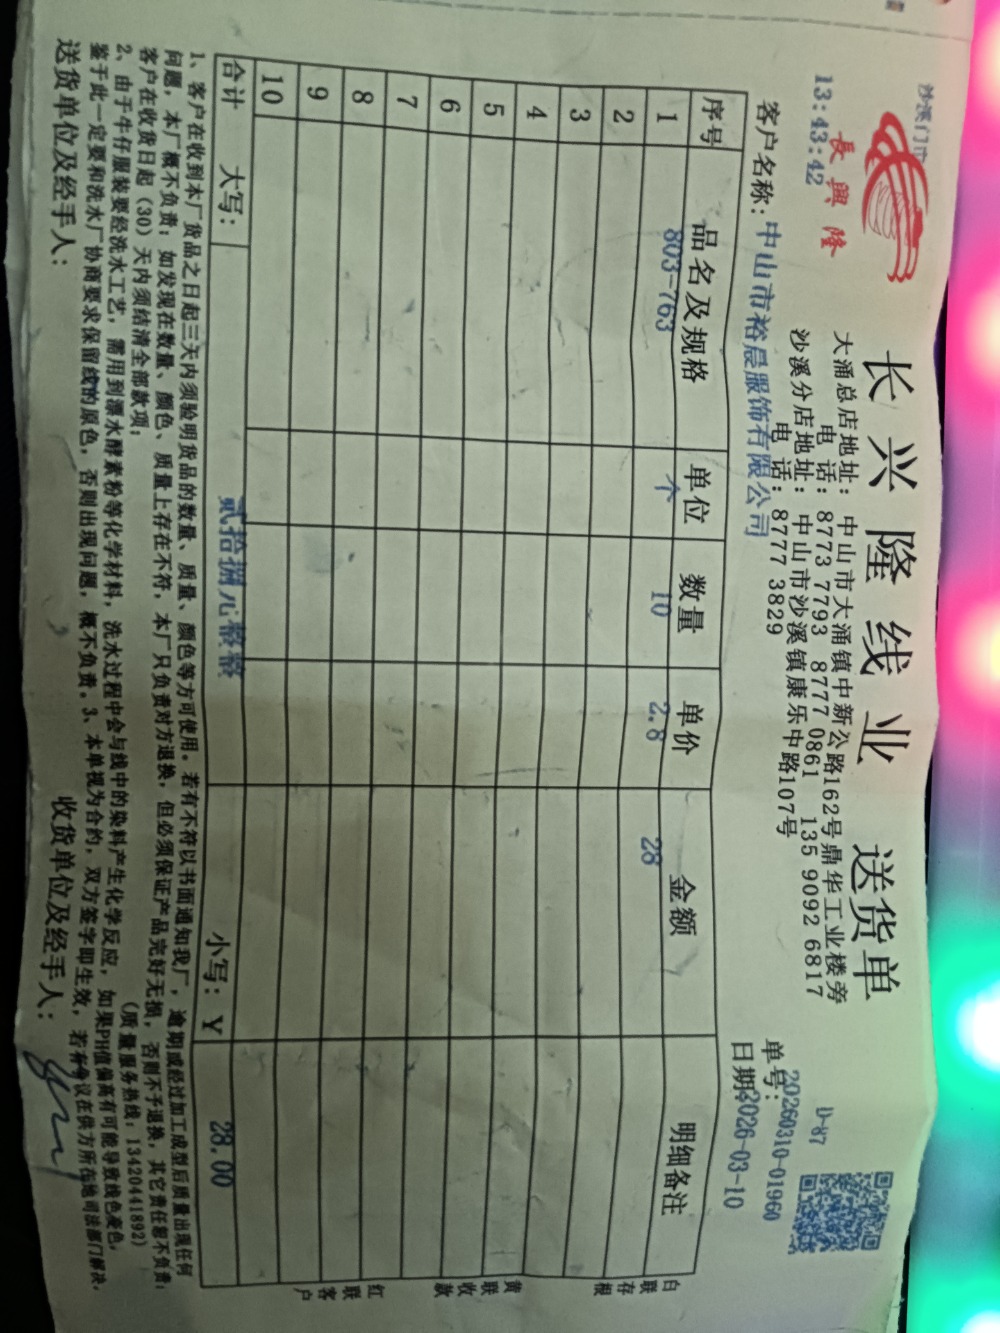 沙溪门市
長興隆
13:43:42
长兴隆线业 送货单
大涌总店地址：中山市大涌镇中新公路162号鼎华工业楼旁
电 话：8773 7793 8777 0861 135 9092 6817
沙溪分店地址：中山市沙溪镇康乐中路107号
电 话：8777 3829
D-87
单号：20260310-01960
日期：2026-03-10
客户名称：中山市裕晨服饰有限公司
序号 品名及规格 单位 数量 单价 金额 明细备注
1 803-763 个 10 2.8 28
2
3
4
5
6
7
8
9
10
合计 大写： 贰拾捌元整整 小写：￥ 28.00
白联存根
黄联收款
红联客户
1、客户在收到本厂货品之日起三天内须验明货品的数量、质量、颜色等方可使用。若有不符以书面通知我厂，逾期或经过加工成型后质量出现任何
问题，本厂概不负责；如发现在数量、颜色、质量上存在不符，本厂只负责对方退换，但必须保证产品完好无损，否则不予退换，其它责任恕不负责；
客户在收货日起（30）天内须结清全部款项； （质量服务热线：13420441892）
2、由于牛仔服装要经洗水工艺，需用到漂水酵素粉等化学材料，洗水过程中会与线中的染料产生化学反应，如果PH值偏高有可能导致线色变色，
鉴于此一定要和洗水厂协商要求保留线的原色，否则出现问题，概不负责。3、本单视为合约，双方签字即生效，若有争议在供方所在地司法部门解决。
送货单位及经手人： 收货单位及经手人：